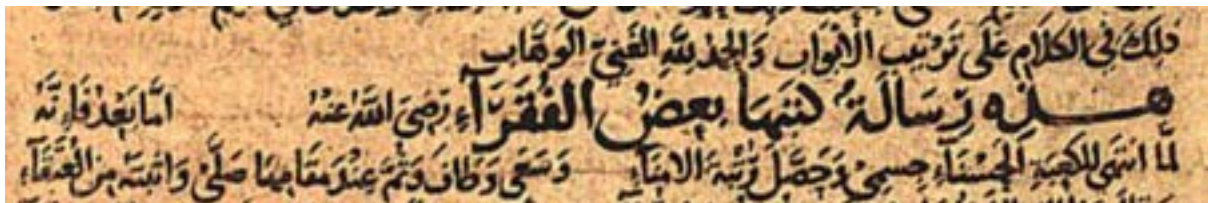 ذلك في الكلام على ترتيب الأبواب والحمد لله الغني الوهاب
هذه رسالة كتبها بعض الفقرآء رضي الله عنه اما بعد فانه
لما انتهى للكعبة الحسنآء جسمي وحصل رتبة الامنآء وسعى وطاف وثم عند مقامها صلى واثبته من العتقآء